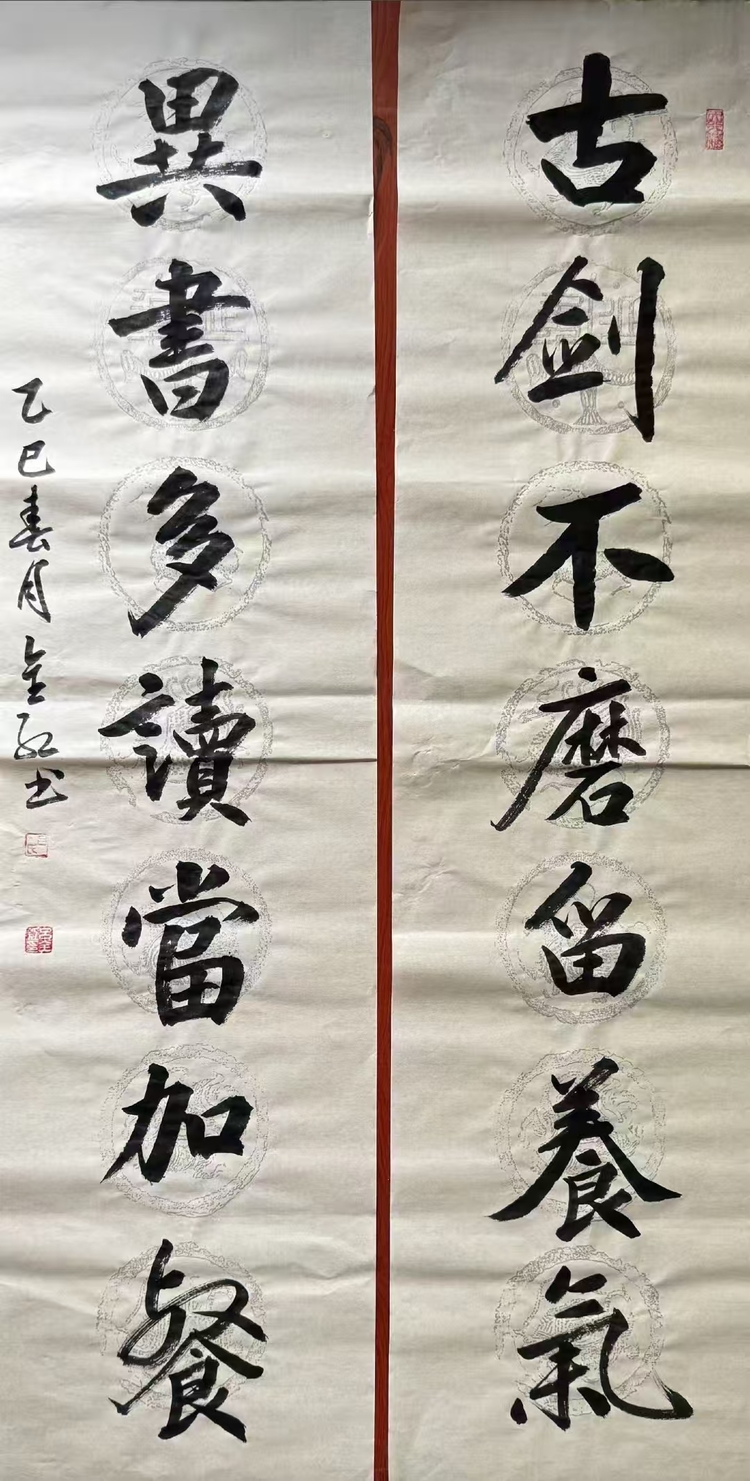 古劍不磨留養氣
異書多讀當加餐
乙巳春月金紅书